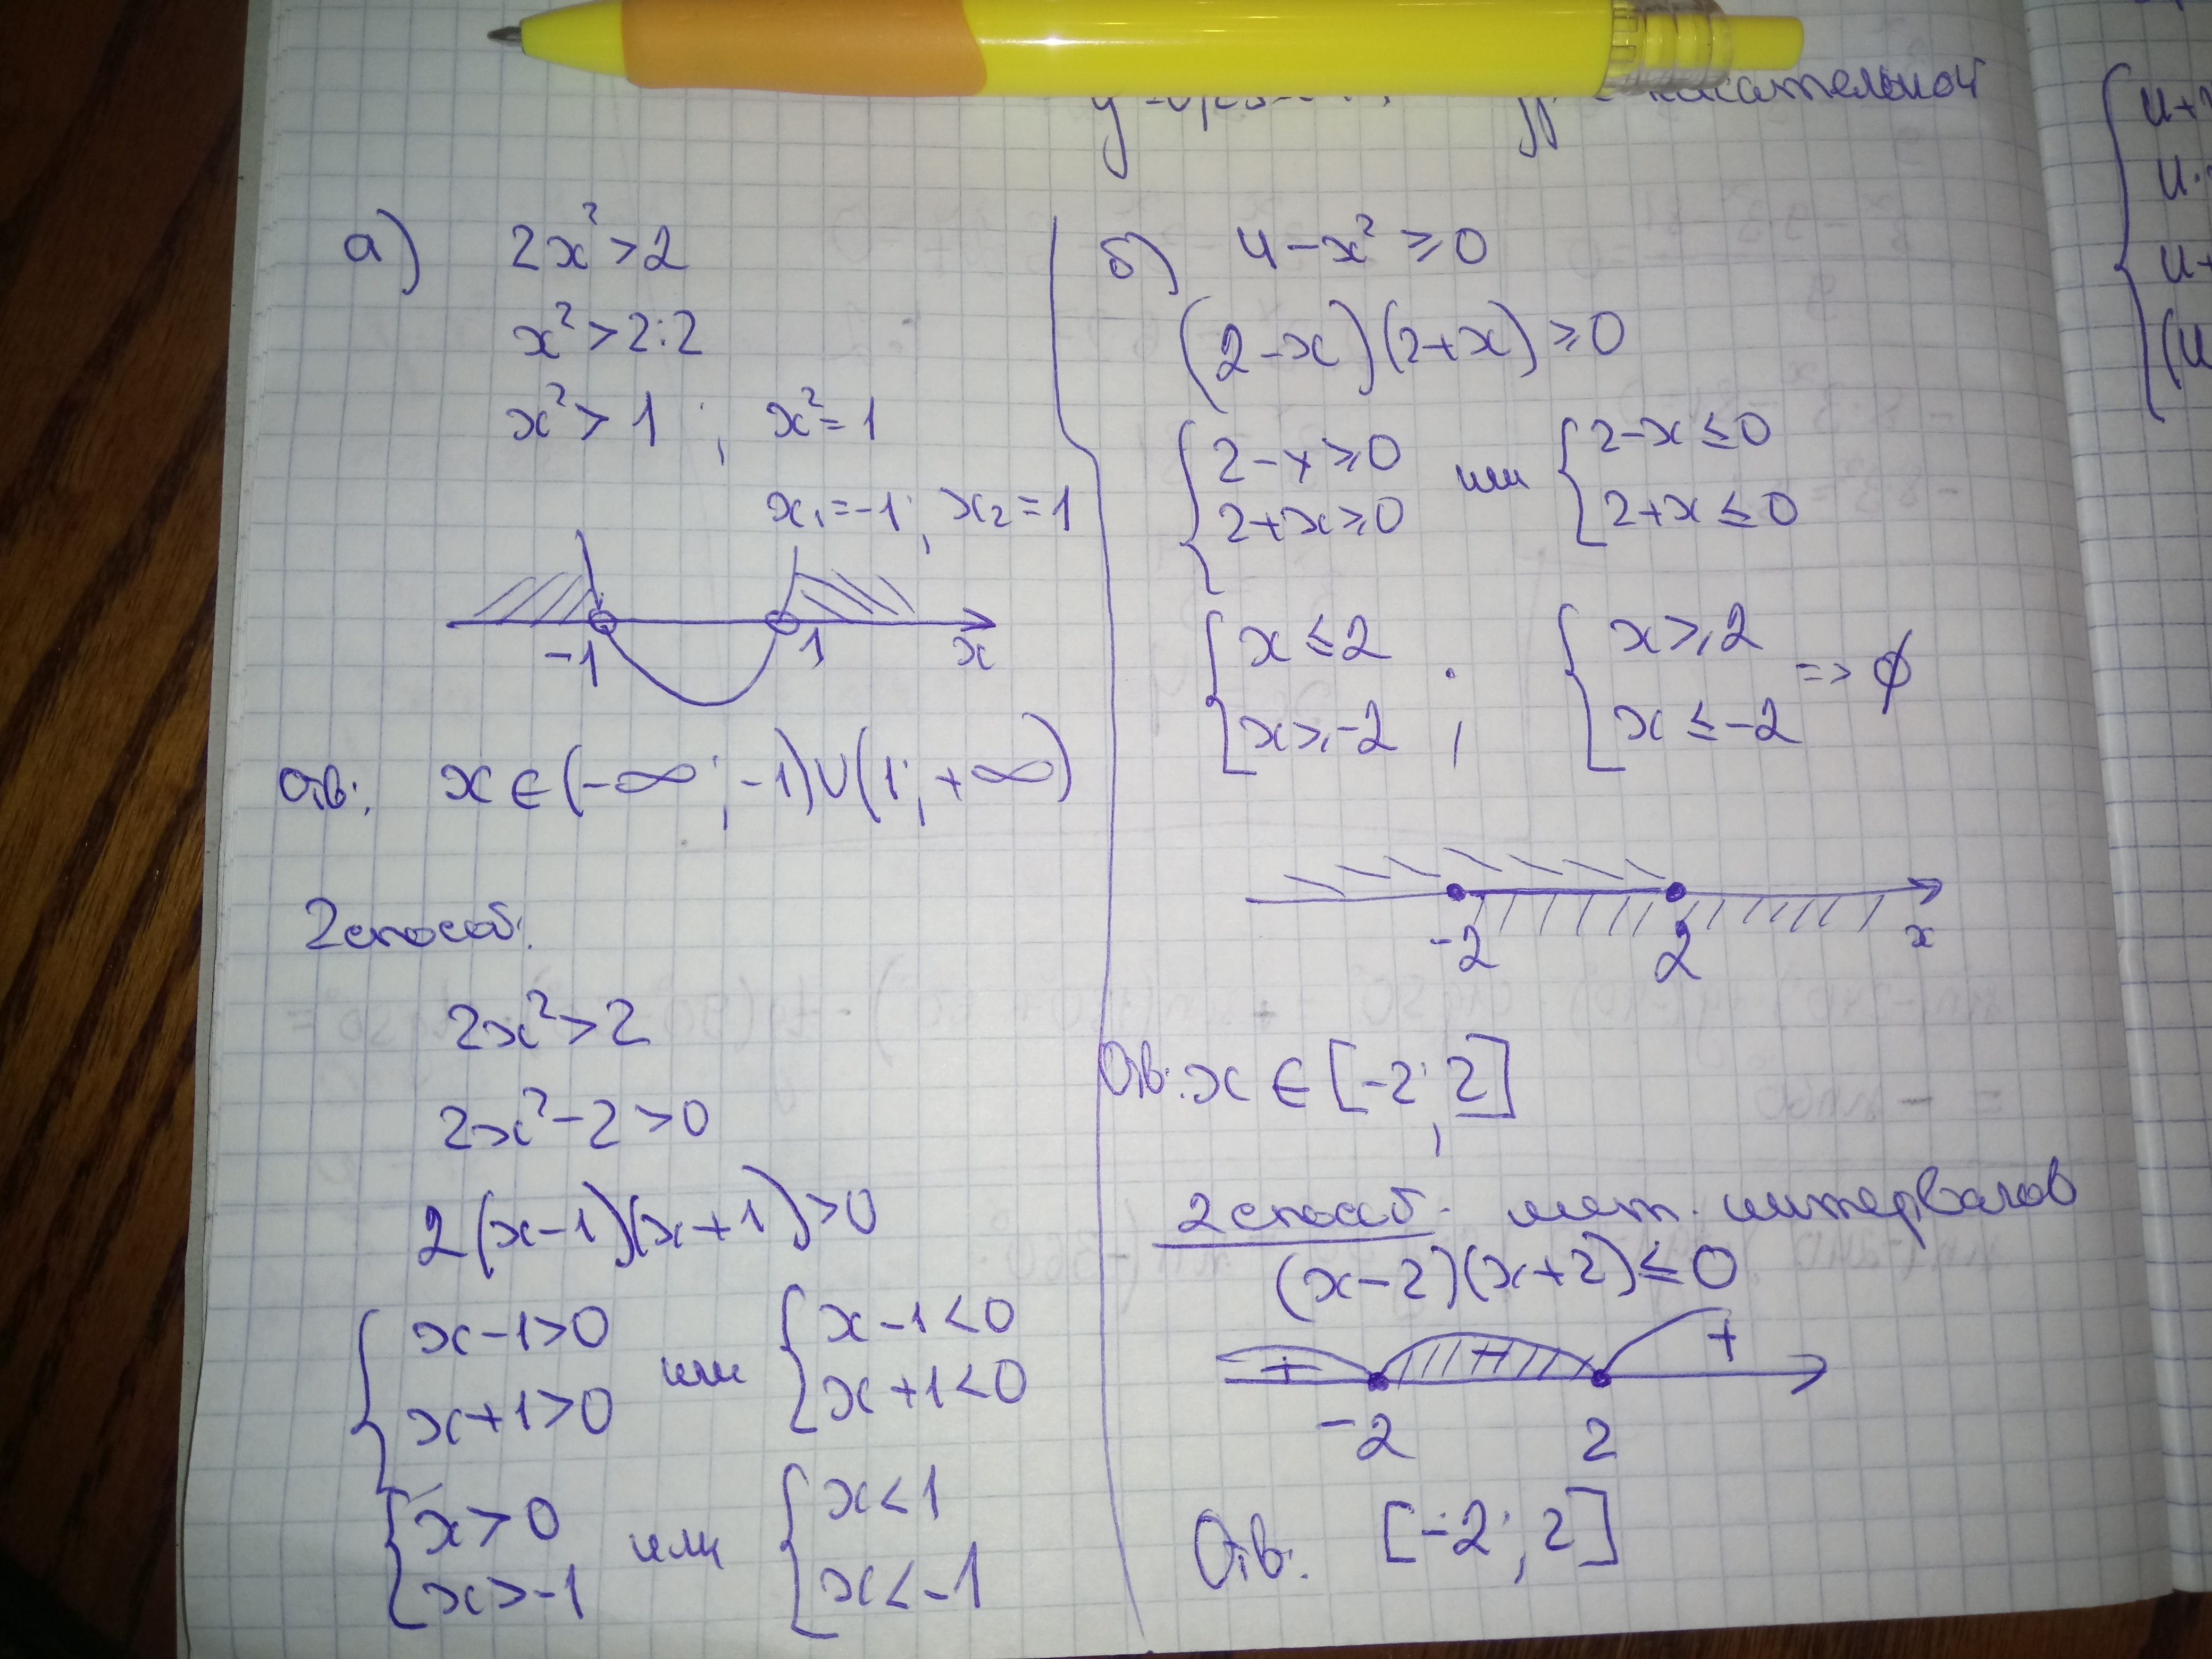 касательной
а) 2x² > 2
x² > 2:2
x² > 1 ; x² = 1
x₁ = -1 ; x₂ = 1
-1 1 x
Отв: x ∈ (-∞; -1) ∪ (1; +∞)
2 способ:
2x² > 2
2x² - 2 > 0
2(x-1)(x+1) > 0
{ x-1 > 0 или { x-1 < 0
x+1 > 0 x+1 < 0
{ x > 0 или { x < 1
x > -1 x < -1
б) 4 - x² ≥ 0
(2-x)(2+x) ≥ 0
{ 2-x ≥ 0 или { 2-x ≤ 0
2+x ≥ 0 2+x ≤ 0
{ x ≤ 2 ; { x ≥ 2 => ∅
x ≥ -2 x ≤ -2
-2 2 x
Отв: x ∈ [-2; 2]
2 способ. мет. интервалов
(x-2)(x+2) ≤ 0
+
-2 2
Отв: [-2; 2]